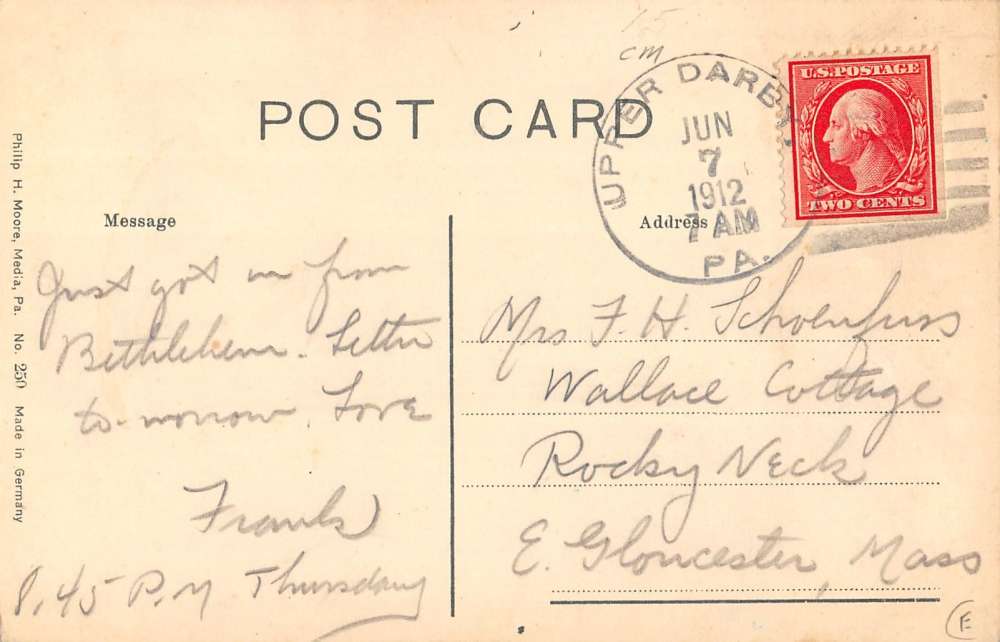 15
CM
POST CARD
UPPER DARBY
JUN
7
1912
7 AM
PA.
U.S. POSTAGE
TWO CENTS
Message
Address
Just got in from
Bethlehem. Letter
to-morrow. Love
Frank
8.45 P.M Thursday
Mrs F. H. Schoenfuss
Wallace Cottage
Rocky Neck
E. Gloucester, Mass
Philip H. Moore, Media, Pa. No. 250 Made in Germany
E